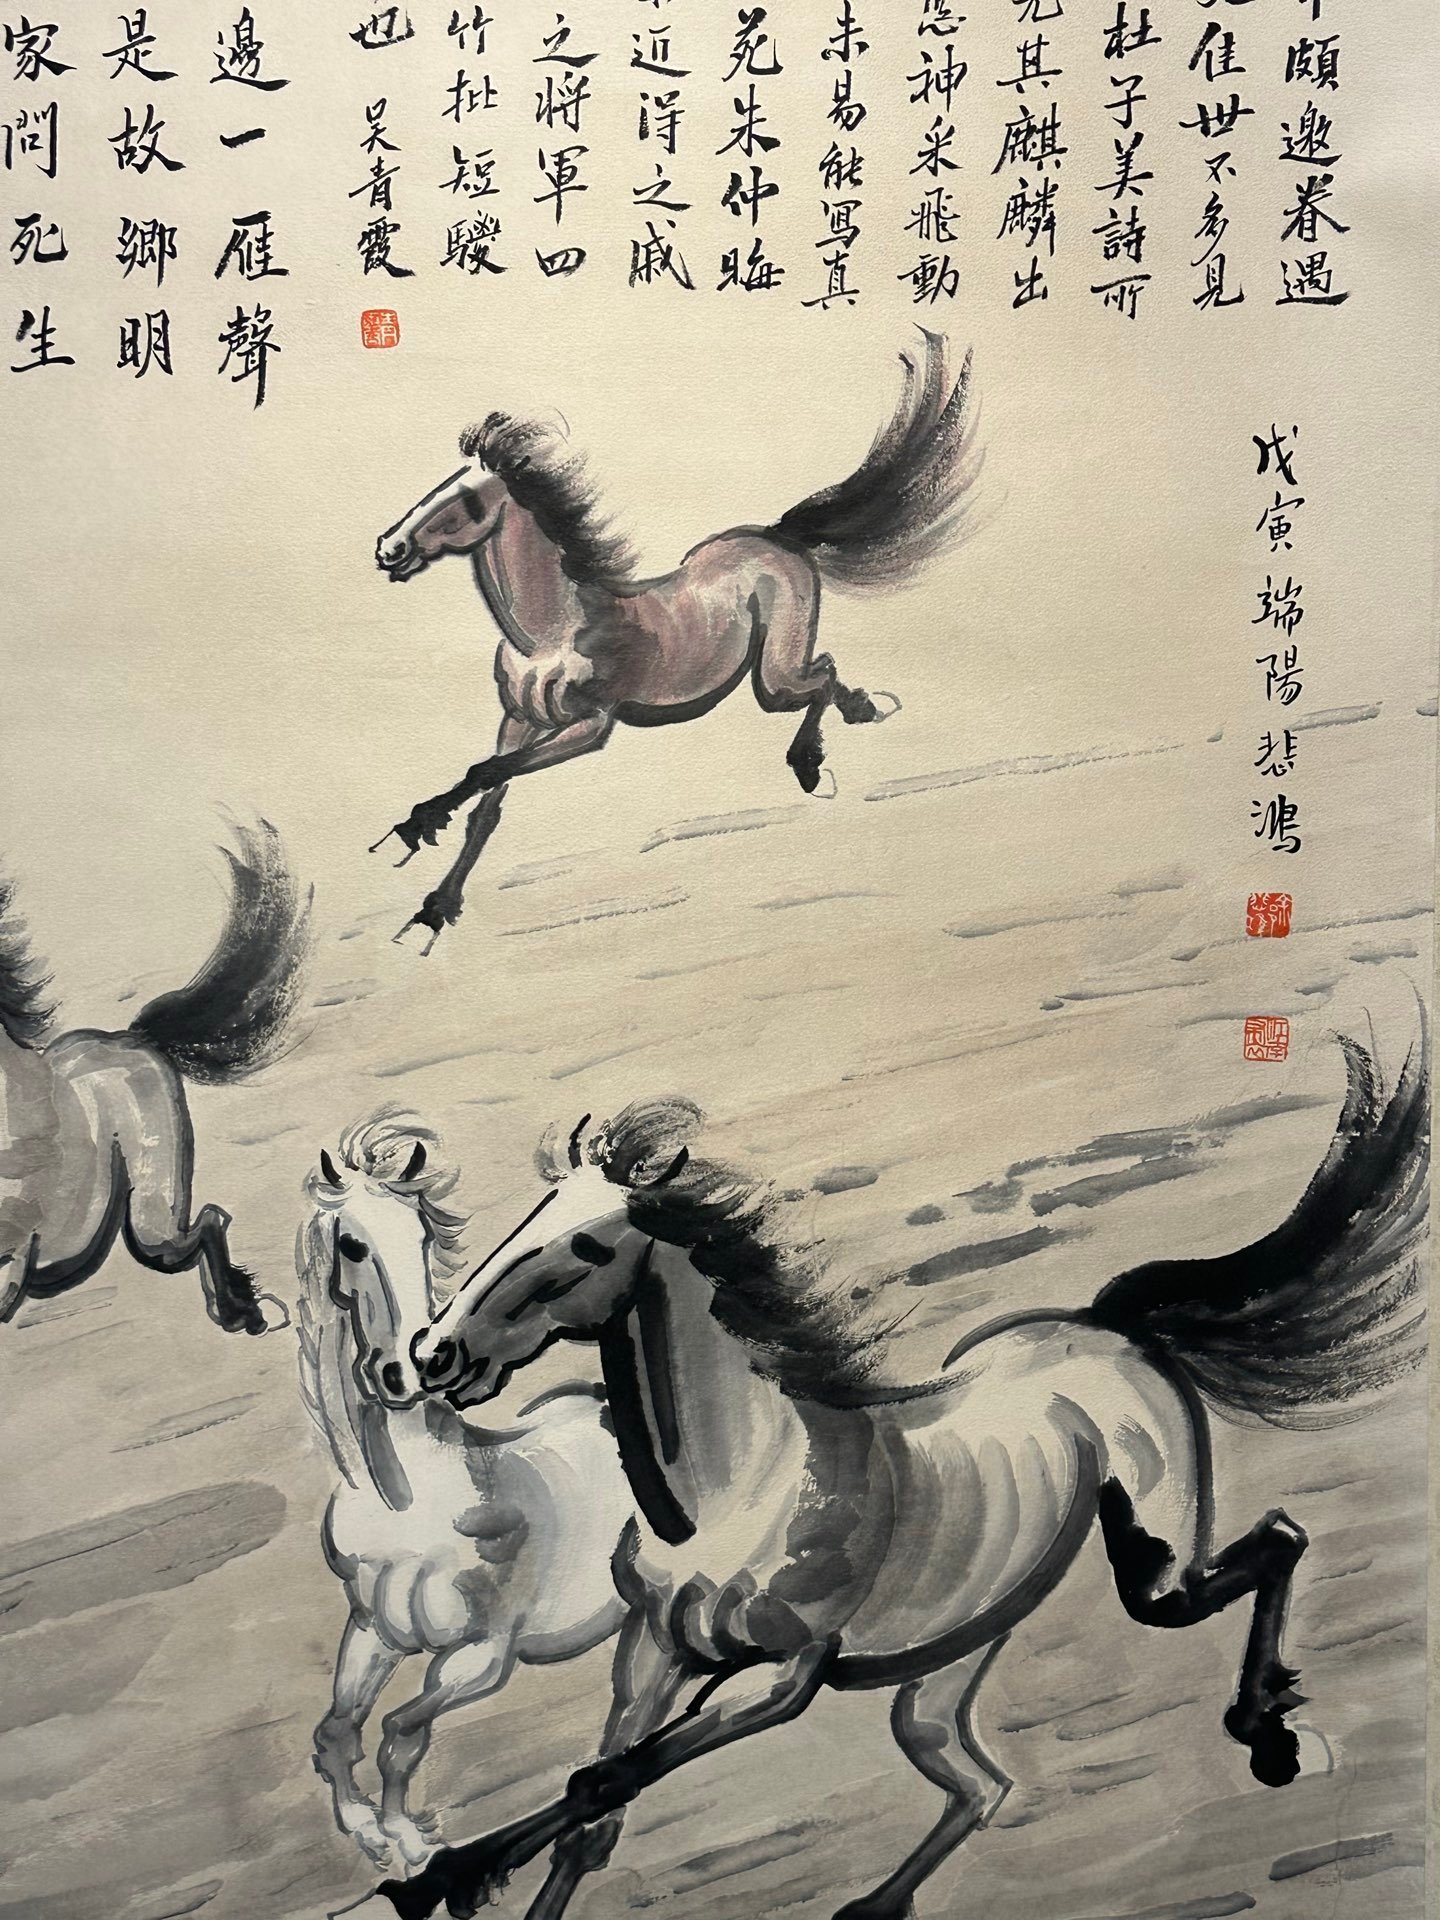 頗邀眷遇
佳世不多見
杜子美詩所
其麒麟出
神采飛動
未易能寫真
苑朱仲晦
近得之戚
之將軍四
竹批短騣
也 吴青霞
邊一雁聲
是故鄉明
家問死生
戊寅端陽悲鴻